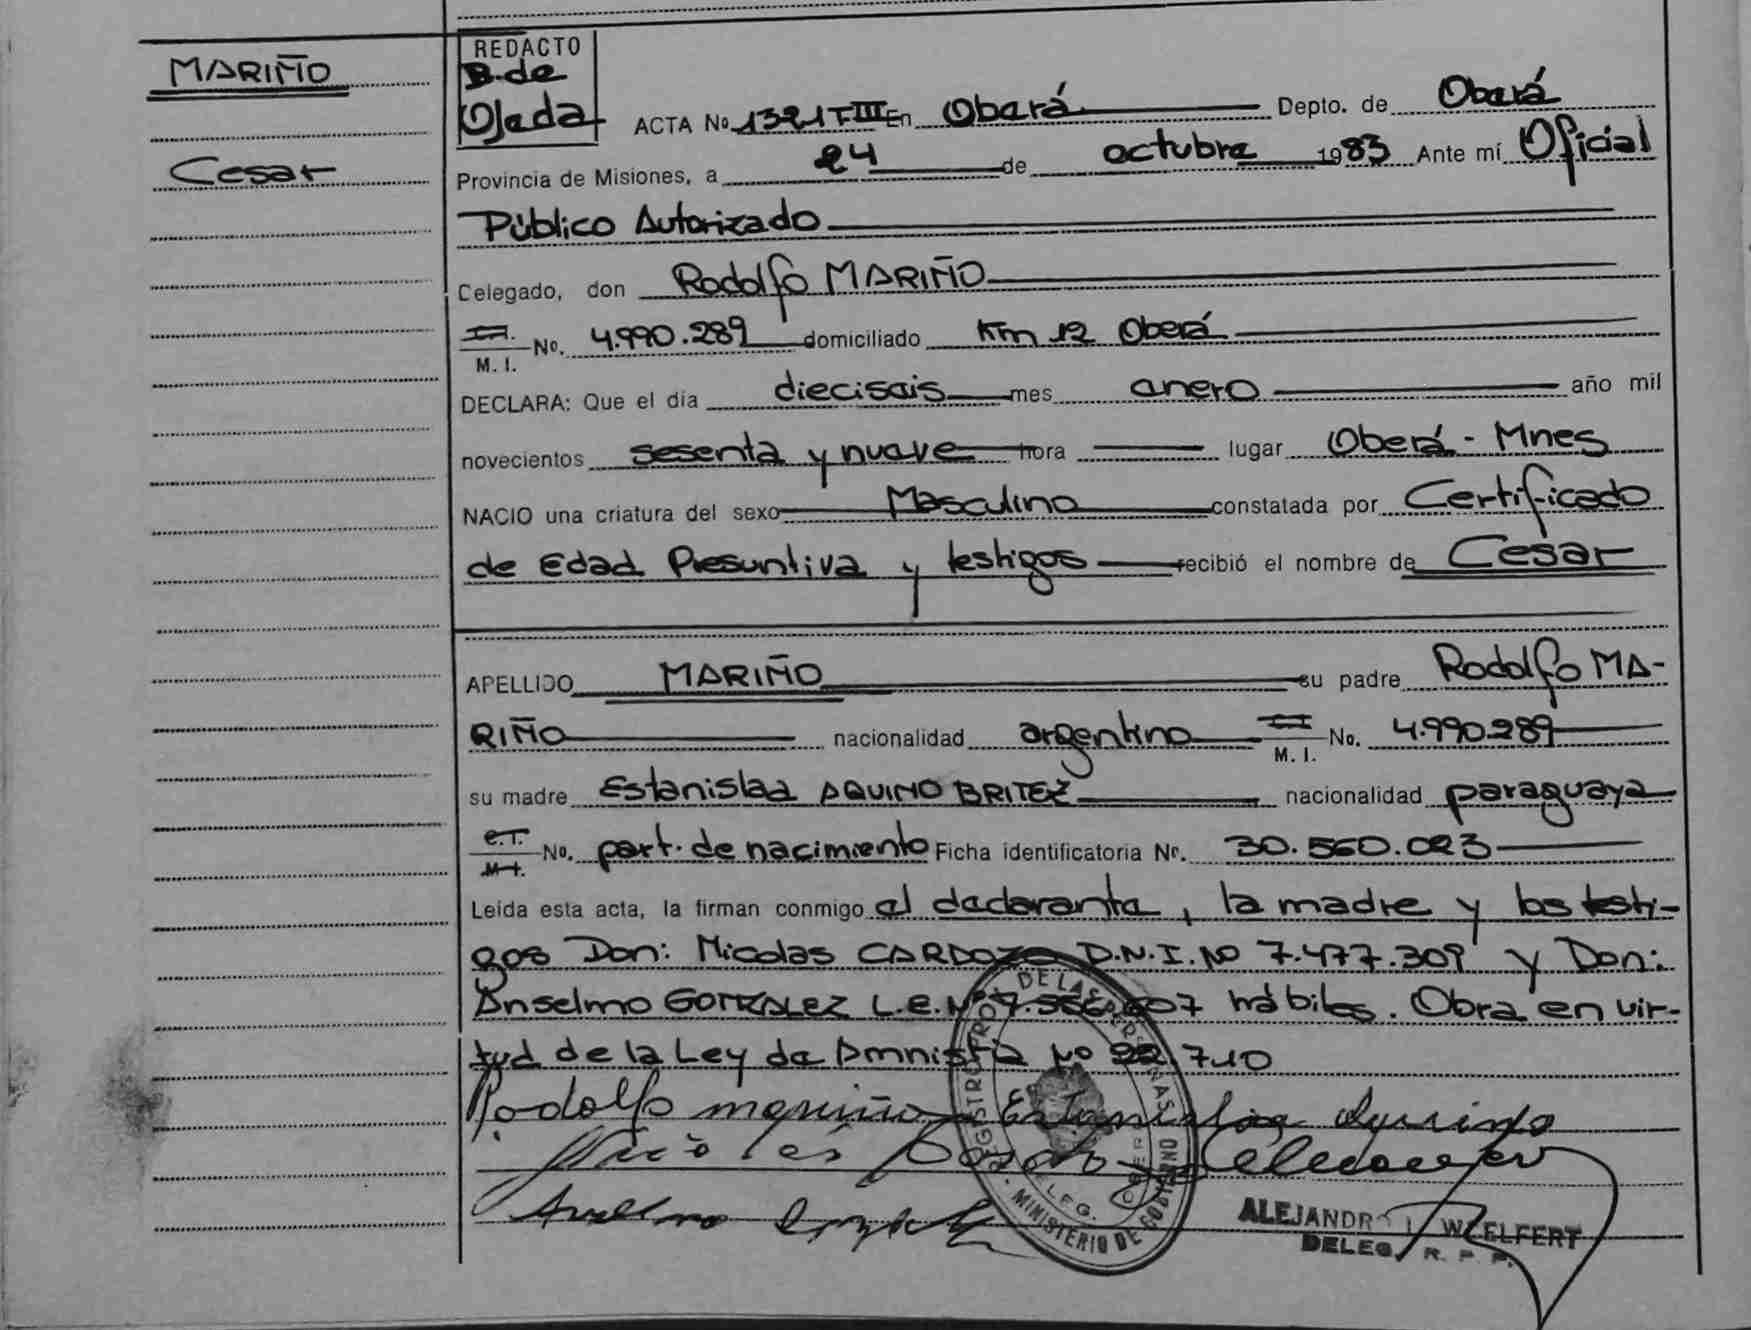 MARIÑO
Cesar
REDACTO
B. de
Ojeda
ACTA No 1321 T-III En Oberá Depto. de Oberá
Provincia de Misiones, a 24 de octubre 1983 Ante mí Oficial
Público Autorizado
Celegado, don Rodolfo MARIÑO
M. I. No. 4.990.289 domiciliado Km 12 Oberá
DECLARA: Que el día dieciseis mes enero año mil
novecientos sesenta y nueve hora lugar Oberá - Mnes
NACIO una criatura del sexo Masculino constatada por Certificado
de Edad Presuntiva y testigos recibió el nombre de Cesar
APELLIDO MARIÑO su padre Rodolfo MA-
RIÑO nacionalidad argentino M. I. No. 4.990.289
su madre Estanislaa AQUINO BRITEZ nacionalidad paraguaya
C.I. M.I. No. part. de nacimiento Ficha identificatoria Nr. 30.560.023
Leída esta acta, la firman conmigo el declarante, la madre y los testi-
gos Don: Nicolas CARDOZO D.N.I. Nº 7.477.309 y Don:
Anselmo GONZALEZ L.E. Nº 7. 607 hábiles. Obra en vir-
tud de la Ley de Amnistía Nº 22.710
Rodolfo mariño Estanislaa Aquino
Nicolás
Anselmo
REGISTRO PROV. DE LAS PERSONAS
MINISTERIO DE GOBIERNO
DELEG.
OBERA
ALEJANDRO WELFERT
DELEG. R. P. P.